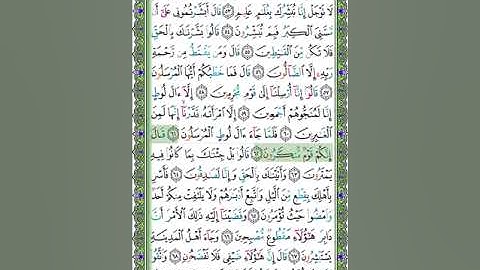 لَا تَوْجَلْ إِنَّا نُبَشِّرُكَ بِغُلَٰمٍ عَلِيمٍ ٥٣ قَالَ أَبَشَّرْتُمُونِي عَلَىٰٓ أَن
مَّسَّنِيَ ٱلْكِبَرُ فَبِمَ تُبَشِّرُونَ ٥٤ قَالُوا۟ بَشَّرْنَٰكَ بِٱلْحَقِّ
فَلَا تَكُن مِّنَ ٱلْقَٰنِطِينَ ٥٥ قَالَ وَمَن يَقْنَطُ مِن رَّحْمَةِ
رَبِّهِۦٓ إِلَّا ٱلضَّآلُّونَ ٥٦ قَالَ فَمَا خَطْبُكُمْ أَيُّهَا ٱلْمُرْسَلُونَ
٥٧ قَالُوٓا۟ إِنَّآ أُرْسِلْنَآ إِلَىٰ قَوْمٍ مُّجْرِمِينَ ٥٨ إِلَّآ ءَالَ لُوطٍ
إِنَّا لَمُنَجُّوهُمْ أَجْمَعِينَ ٥٩ إِلَّا ٱمْرَأَتَهُۥ قَدَّرْنَآ إِنَّهَا لَمِنَ
ٱلْغَٰبِرِينَ ٦٠ فَلَمَّا جَآءَ ءَالَ لُوطٍ ٱلْمُرْسَلُونَ ٦١ قَالَ
إِنَّكُمْ قَوْمٌ مُّنكَرُونَ ٦٢ قَالُوا۟ بَلْ جِئْنَٰكَ بِمَا كَانُوا۟ فِيهِ
يَمْتَرُونَ ٦٣ وَأَتَيْنَٰكَ بِٱلْحَقِّ وَإِنَّا لَصَٰدِقُونَ ٦٤ فَأَسْرِ
بِأَهْلِكَ بِقِطْعٍ مِّنَ ٱلَّيْلِ وَٱتَّبِعْ أَدْبَٰرَهُمْ وَلَا يَلْتَفِتْ مِنكُمْ أَحَدٌ
وَٱمْضُوا۟ حَيْثُ تُؤْمَرُونَ ٦٥ وَقَضَيْنَآ إِلَيْهِ ذَٰلِكَ ٱلْأَمْرَ أَنَّ
دَابِرَ هَٰٓؤُلَآءِ مَقْطُوعٌ مُّصْبِحِينَ ٦٦ وَجَآءَ أَهْلُ ٱلْمَدِينَةِ
يَسْتَبْشِرُونَ ٦٧ قَالَ إِنَّ هَٰٓؤُلَآءِ ضَيْفِى فَلَا تَفْضَحُونِ ٦٨